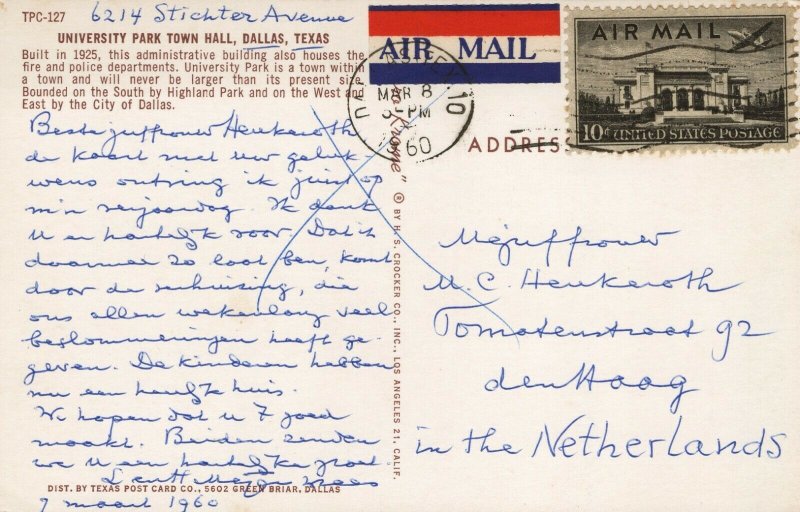 TPC-127 6214 Stichter Avenue
UNIVERSITY PARK TOWN HALL, DALLAS, TEXAS
Built in 1925, this administrative building also houses the
fire and police departments. University Park is a town within
a town and will never be larger than its present size.
Bounded on the South by Highland Park and on the West and
East by the City of Dallas.
Beste juffrouw Heukeroth
de kaart met uw geluk-
wens ontving ik juist op
m'n verjaardag. Ik dank
U er hartelijk voor. Dat ik
daarmee zo laat ben, komt
door de verhuizing, die
ons allen wekenlang veel
beslommeringen heeft ge-
geven. De kinderen hebben
nu een heerlijk huis.
We hopen dat u 't goed
maakt. Beiden zenden
we U een hartelijke groet.
9 maart 1960
DIST. BY TEXAS POST CARD CO., 5602 GREEN BRIAR, DALLAS
® BY H. S. CROCKER CO., INC., LOS ANGELES 21, CALIF.
AIR MAIL
MAR 8
PM
60
10
AIR MAIL
10¢ UNITED STATES POSTAGE
ADDRESS
Mejuffrouw
M. C. Heukeroth
Tomatenstraat 92
den Haag
in the Netherlands